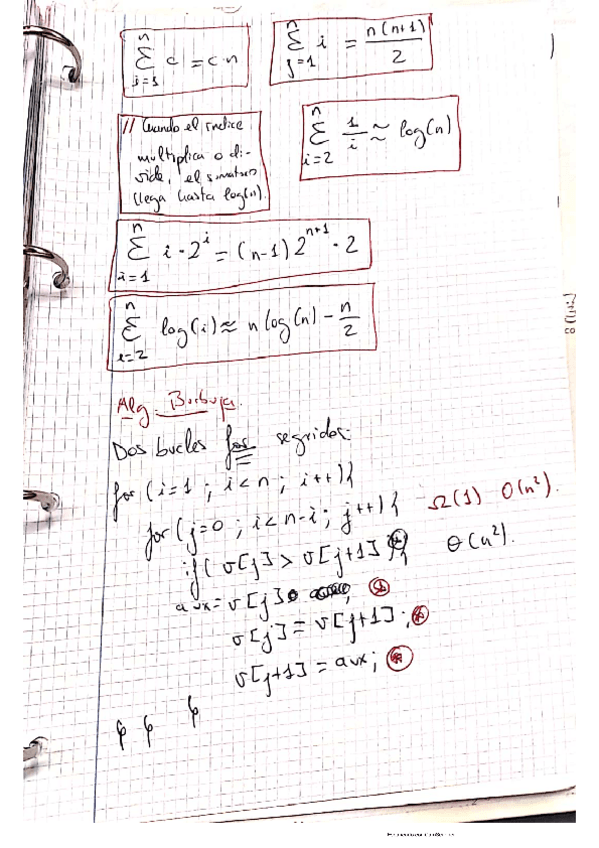 n
Σ c = c·n
i=1
n
Σ i = n(n+1)/2
j=1
// Cuando el índice
multiplica o di-
vide, el sumatorio
llega hasta log(n).
n
Σ 1/i ≈ log(n)
i=2
n
Σ i·2^i = (n-1) 2^(n+1) · 2
i=1
n
Σ log(i) ≈ n log(n) - n/2
i=2
Alg. Burbuja.
Dos bucles for seguidos.
for (i=1 ; i<n ; i++){
for (j=0 ; i<n-i ; j++){ Ω(1) O(n²).
if( v[j] > v[j+1] ){ θ(n²).
aux = v[j]
v[j] = v[j+1];
v[j+1] = aux;
} } }